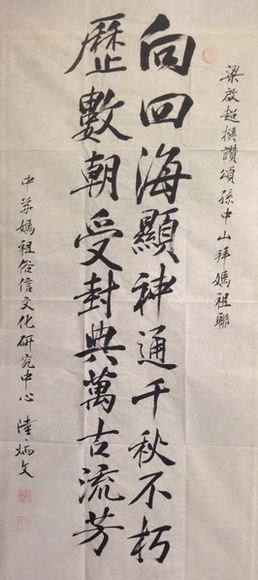 梁啟超撰讚頌孫中山拜媽祖聯
向四海顯神通千秋不朽
歷數朝受封典萬古流芳
中華媽祖俗信文化研究中心 陸炳文